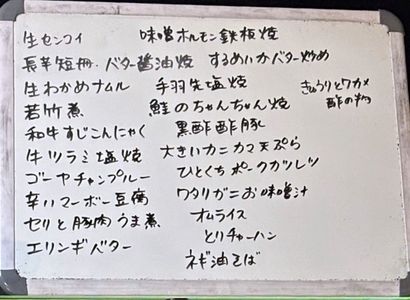 生センコイ
長芋短冊バター醤油焼
生わかめナムル
若竹煮
和牛すじこんにゃく
牛ツラミ塩焼
ゴーヤチャンプルー
辛いマーボー豆腐
セリと豚肉うま煮
エリンギバター
味噌ホルモン鉄板焼
するめいかバター炒め
手羽先塩焼
鮭のちゃんちゃん焼
黒酢酢豚
大きいカニカマ天ぷら
ひとくちポークカツレツ
ワタリガニお味噌汁
オムライス
とりチャーハン
ネギ油そば
きゅうりとワカメ
酢の物